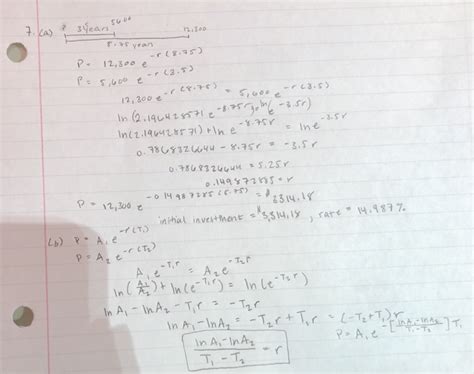 7. (a) 3.5 years 5600 12,300
8.75 years
P = 12,300 e^-r(8.75)
P = 5,600 e^-r(3.5)
12,300 e^-r(8.75) = 5,600 e^-r(3.5)
ln(2.196428571 e^-8.75r) = ln(e^-3.5r)
ln(2.196428571) + ln e^-8.75r = ln e^-3.5r
0.7868326644 - 8.75r = -3.5r
0.7868326644 = 5.25r
0.149872888 = r
P = 12,300 e^-0.14987288(8.75) = $3314.18
initial investment = $3,314.18, rate = 14.987%
(b) P = A₁ e^-r(T₁)
P = A₂ e^-r(T₂)
A₁ e^-T₁r = A₂ e^-T₂r
ln(A₁/A₂) + ln(e^-T₁r) = ln(e^-T₂r)
ln A₁ - ln A₂ - T₁r = -T₂r
ln A₁ - ln A₂ = -T₂r + T₁r = (-T₂ + T₁) r
(ln A₁ - ln A₂)/(T₁ - T₂) = r
P = A₁ e^-[(ln A₁ - ln A₂)/(T₁ - T₂)] T₁